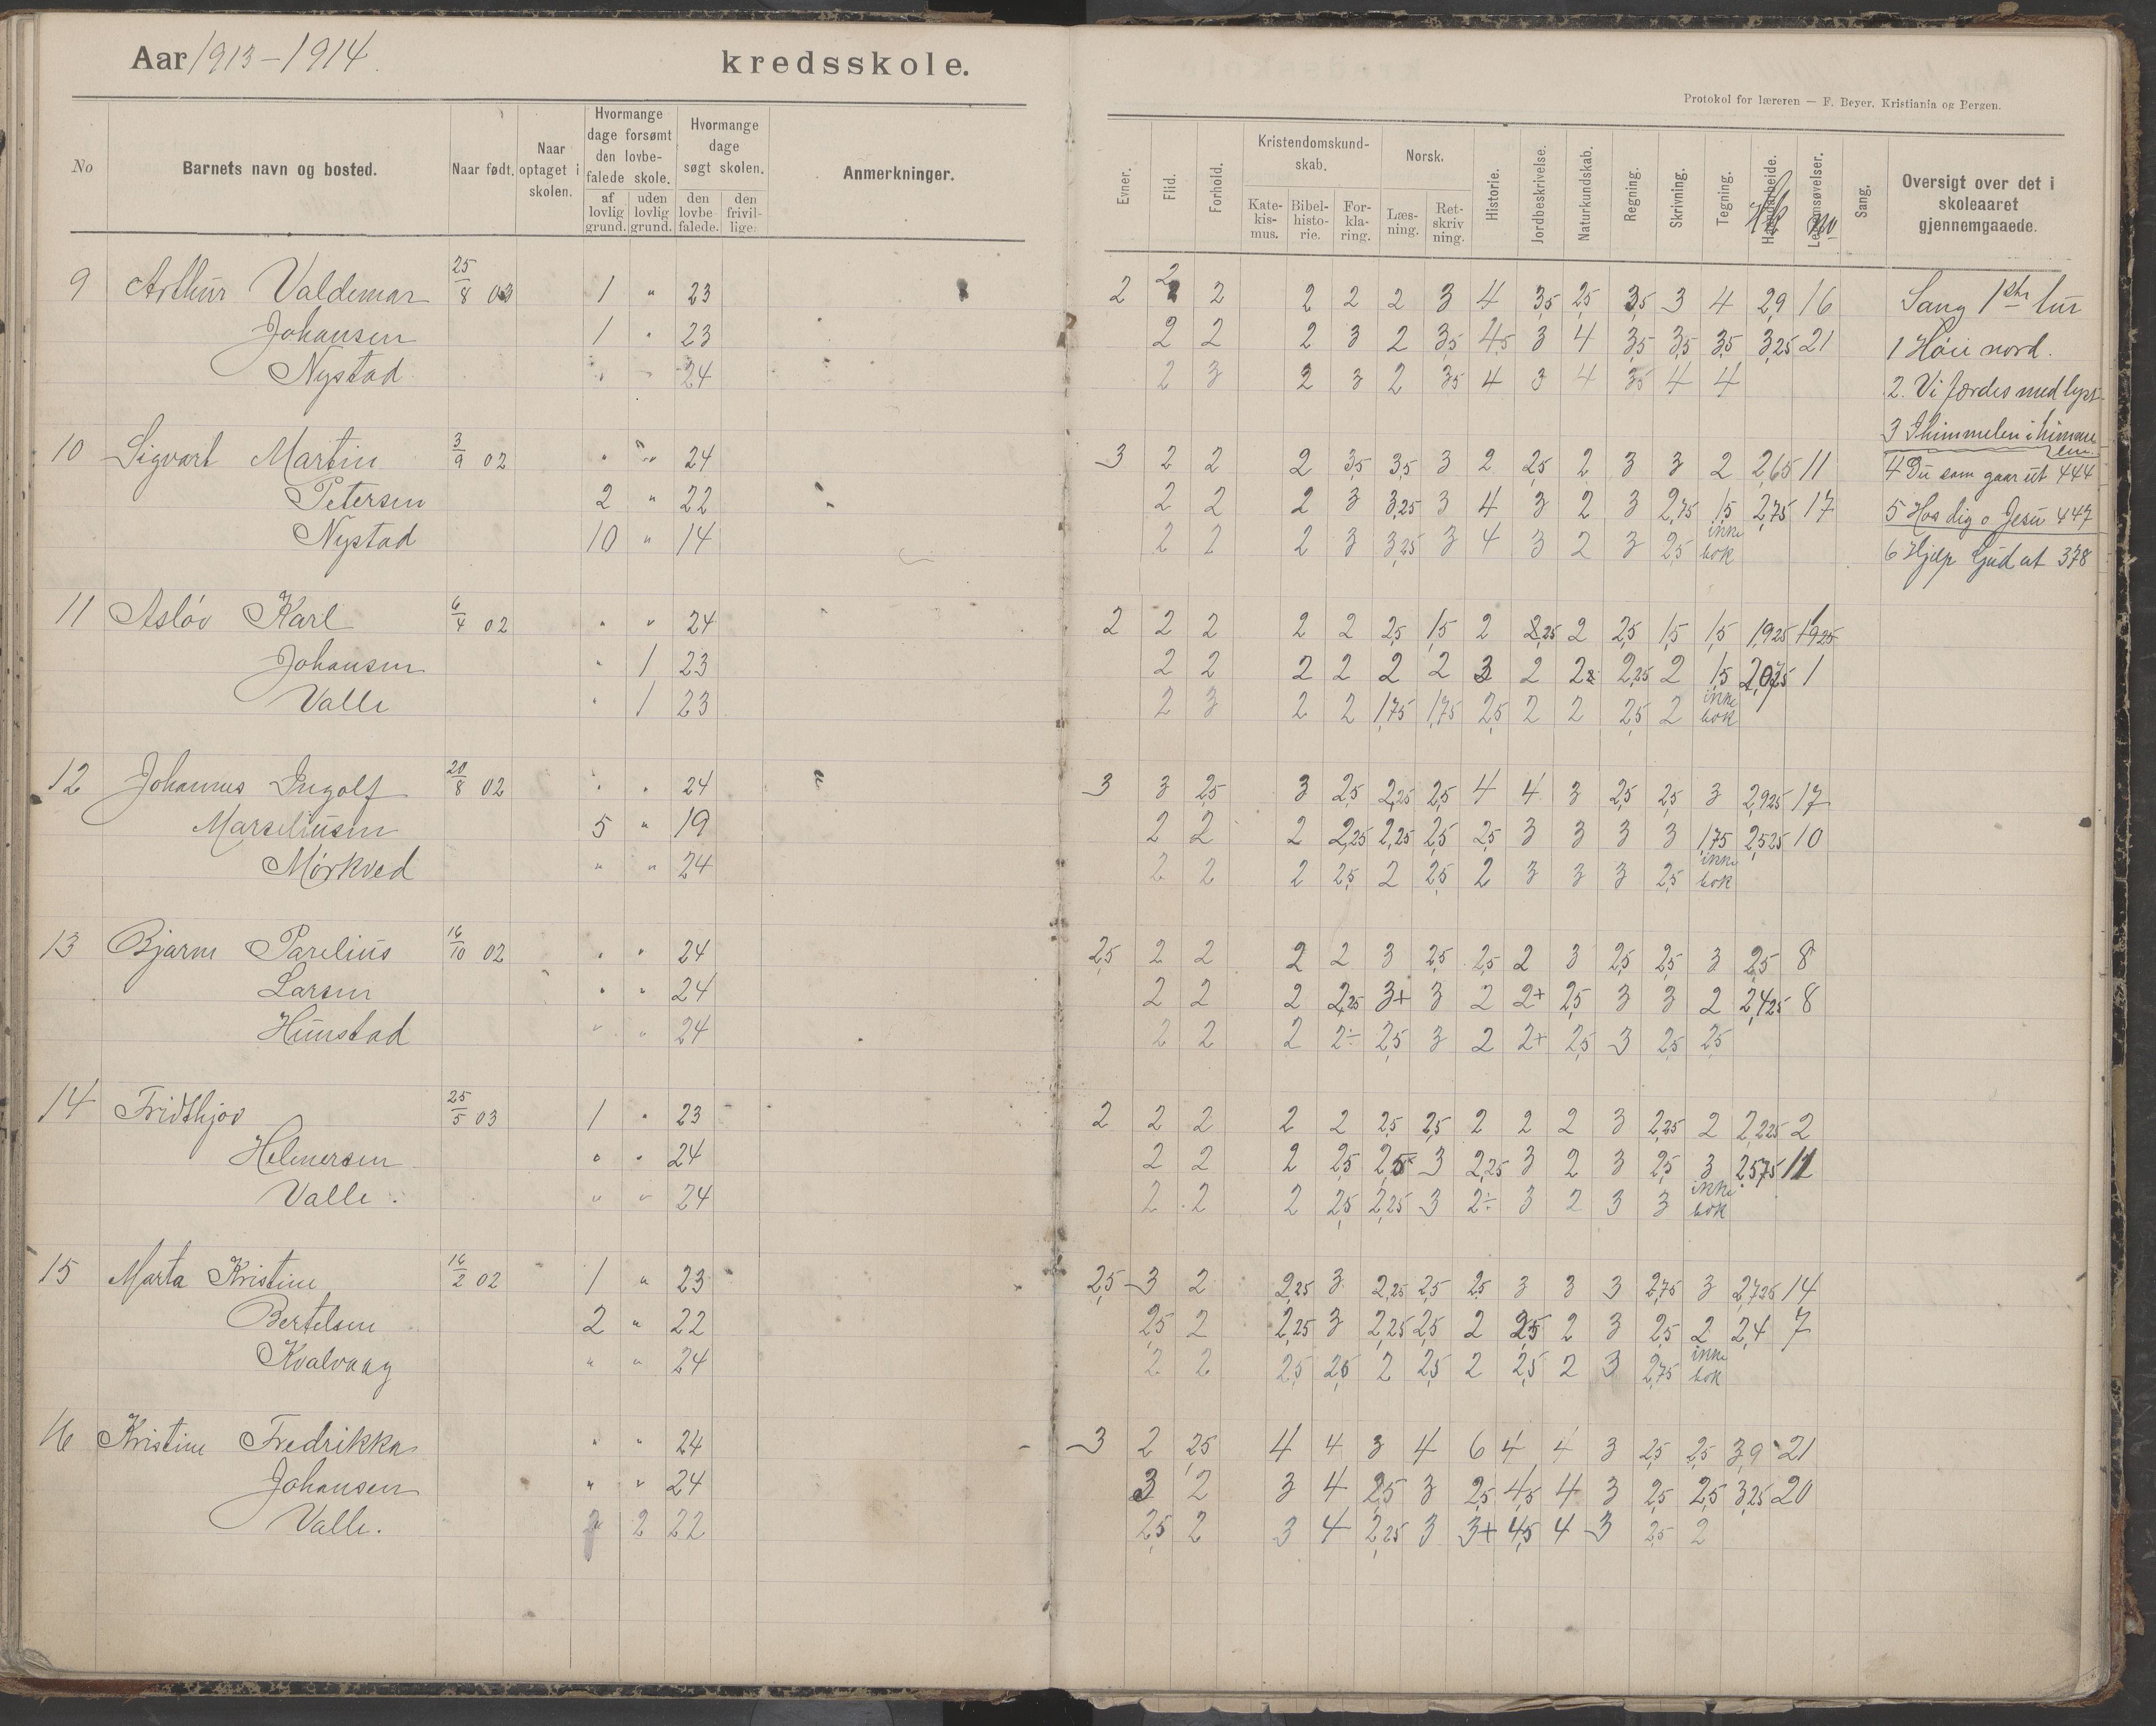 Aar 1913-1914 kredsskole.
Protokol for læreren — F. Beyer, Kristiania og Bergen.
No Barnets navn og bosted. Naar født. Naar optaget i skolen. Hvormange dage forsømt den lovbefalede skole. af lovlig grund. uden lovlig grund. Hvormange dage søgt skolen. den lovbefalede. den frivillige. Anmerkninger.
Evner. Flid. Forhold. Kristendomskundskab. Katekismus. Bibelhistorie. Forklaring. Norsk. Læsning. Retskrivning. Historie. Jordbeskrivelse. Naturkundskab. Regning. Skrivning. Tegning. Haandarbeide. Legemsøvelser. Sang. Oversigt over det i skoleaaret gjennemgaaede.
9 Arthur Valdemar 25/8 03 1 " 23 2 2 2 2 2 2 3 4 3,5 2,5 3,5 3 4 2,9 16 Sang 1ste tur
Johansen 1 " 23 2 2 2 3 2 3,5 4,5 3 4 3,5 3,5 3,5 3,25 21 1 Høit nord.
Nystad " " 24 2 3 2 3 2 3,5 4 3 4 3,5 4 4 2. Vi færdes med lyst
3 I himmelen i himmelen
10 Sigvart Martin 3/9 02 " " 24 3 2 2 2 3,5 3,5 3 2 2,5 2 3 3 2 2,65 11 4 Du som gaar ut 444
Petersen 2 " 22 2 2 2 3 3,25 3 4 3 2 3 2,75 1,5 2,75 17 5 Hos dig o Jesu 447
Nystad 10 " 14 2 2 2 3 3,25 3 4 3 2 3 2,5 inke bok 6 Hjælp Gud at 378
11 Asløv Karl 6/4 02 " " 24 2 2 2 2 2 2,5 1,5 2 2,25 2 2,5 1,5 1,5 1,925 1
Johansen " 1 23 2 2 2 2 2 2 3 2 2 2,25 2 1,5 2,075 1
Valle " 1 23 2 3 2 2 1,75 1,75 2,5 2 2 2,5 2 inke bok
12 Johannes Ingolf 20/8 02 " " 24 3 3 2,5 3 2,5 2,25 2,5 4 4 3 2,5 2,5 3 2,925 17
Marseliusen 5 " 19 2 2 2 2,25 2,25 2,5 2,5 3 3 3 3 1,75 2,525 10
Mørkved " " 24 2 2 2 2,5 2 2,5 2 3 3 3 2,5 inke bok
13 Bjarne Parelius 16/10 02 " " 24 2,5 2 2 2 2 3 2,5 2,5 2 3 2,5 2,5 3 2,5 8
Larsen " " 24 2 2 2 2,25 3+ 3 2 2+ 2,5 3 3 2 2,425 8
Hunstad " " 24 2 2 2 2÷ 2,5 3 2 2+ 2,5 3 2,5 2,5
14 Fridthjov 25/5 03 1 " 23 2 2 2 2 2 2,5 2,5 2 2 2 3 2,25 2 2,225 2
Helmersen " " 24 2 2 2 2,5 2,5 3 2,25 3 2 3 2,5 3 2,575 11
Valle. " " 24 2 2 2 2,5 2,25 3 2÷ 3 2 3 3 inke bok
15 Marta Kristine 16/2 02 1 " 23 2,5 3 2 2,25 3 2,25 2,5 2,5 3 3 3 2,75 3 2,725 14
Bertelsen 2 " 22 2,5 2 2,25 3 2,25 2,5 2 2,5 2 3 2,5 2 2,4 7
Kvalvaag " " 24 2 2 2,5 2,5 2 2,5 2 2,5 2 3 2,75 inke bok
16 Kristine Fredrikka " " 24 3 2 2,5 4 4 3 4 6 4 4 3 2,5 2,5 3,9 21
Johansen " " 24 3 2 3 4 2,5 3 2,5 4,5 4 3 2,5 2,5 3,25 20
Valle. " 2 22 2,5 2 3 4 2,25 3 3+ 4,5 4 3 2,5 2